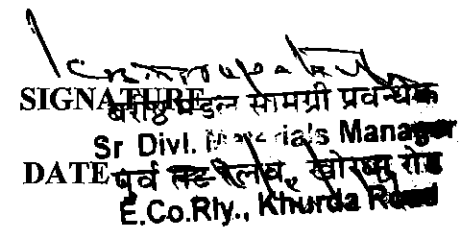 SIGNATURE
बरिष्ठ मंडल सामग्री प्रवन्धक
Sr Divl. Materials Manager
DATE
पूर्व तट रेलवे, खोरधा रोड
E.Co.Rly., Khurda Road